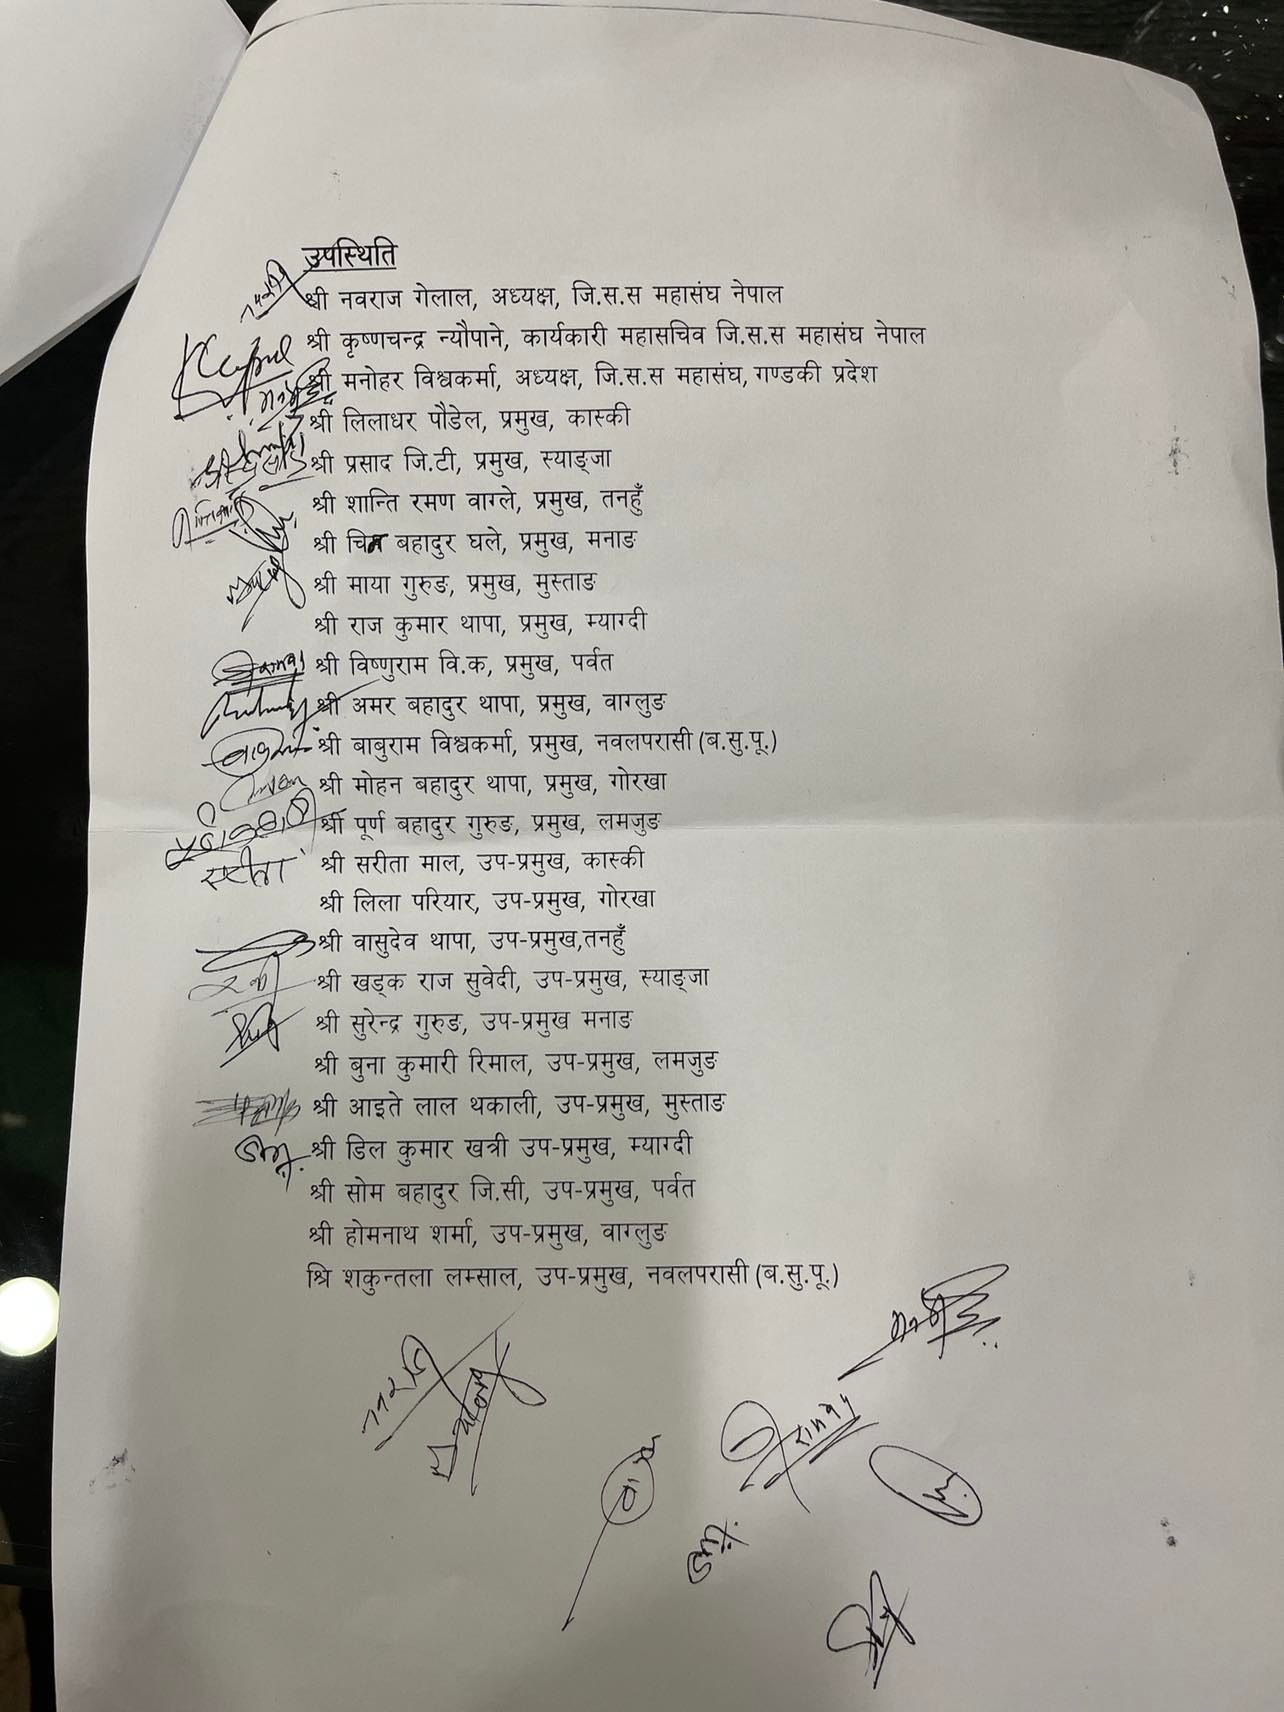 उपस्थिति
श्री नवराज गेलाल, अध्यक्ष, जि.स.स महासंघ नेपाल
श्री कृष्णचन्द्र न्यौपाने, कार्यकारी महासचिव जि.स.स महासंघ नेपाल
श्री मनोहर विश्वकर्मा, अध्यक्ष, जि.स.स महासंघ, गण्डकी प्रदेश
श्री लिलाधर पौडेल, प्रमुख, कास्की
श्री प्रसाद जि.टी, प्रमुख, स्याङ्जा
श्री शान्ति रमण वाग्ले, प्रमुख, तनहुँ
श्री बहादुर घले, प्रमुख, मनाङ
श्री माया गुरुङ, प्रमुख, मुस्ताङ
श्री राज कुमार थापा, प्रमुख, म्याग्दी
श्री विष्णुराम वि.क, प्रमुख, पर्वत
श्री अमर बहादुर थापा, प्रमुख, वाग्लुङ
श्री बाबुराम विश्वकर्मा, प्रमुख, नवलपरासी (ब.सु.पू.)
श्री मोहन बहादुर थापा, प्रमुख, गोरखा
श्री पूर्ण बहादुर गुरुङ, प्रमुख, लमजुङ
सरीता श्री सरीता माल, उप-प्रमुख, कास्की
श्री लिला परियार, उप-प्रमुख, गोरखा
श्री वासुदेव थापा, उप-प्रमुख,तनहुँ
श्री खड्क राज सुवेदी, उप-प्रमुख, स्याङ्जा
श्री सुरेन्द्र गुरुङ, उप-प्रमुख मनाङ
श्री बुना कुमारी रिमाल, उप-प्रमुख, लमजुङ
श्री आइते लाल थकाली, उप-प्रमुख, मुस्ताङ
श्री डिल कुमार खत्री उप-प्रमुख, म्याग्दी
श्री सोम बहादुर जि.सी, उप-प्रमुख, पर्वत
श्री होमनाथ शर्मा, उप-प्रमुख, वाग्लुङ
श्रि शकुन्तला लम्साल, उप-प्रमुख, नवलपरासी (ब.सु.पू.)